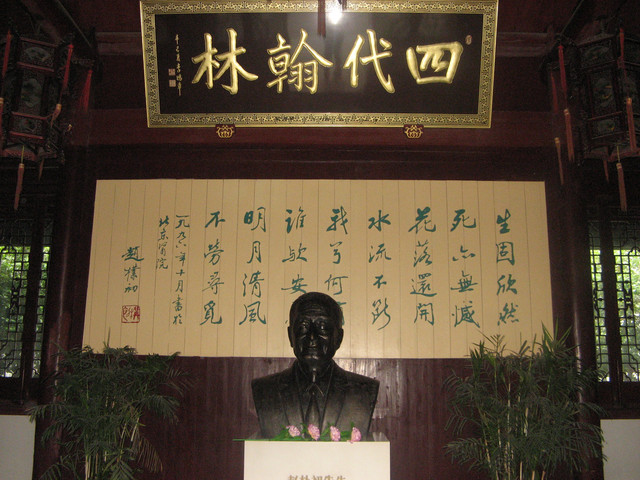 四代翰林
生固欣然
死亦無憾
花落還開
水流不斷
我兮何
誰歟安
明月清風
不勞尋覓
一九九六年十月書於
北京醫院
趙樸初
趙朴初先生